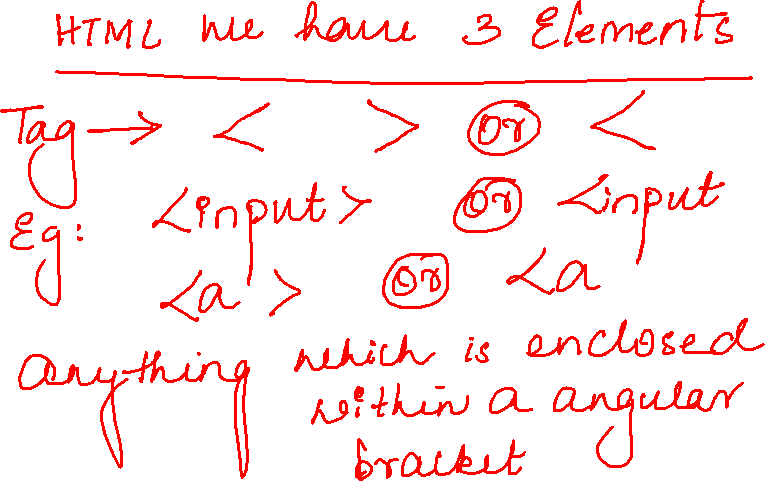 HTML we have 3 Elements
Tag → < > or <
Eg: <input> or <input
<a > or <a
anything which is enclosed
within a angular
bracket